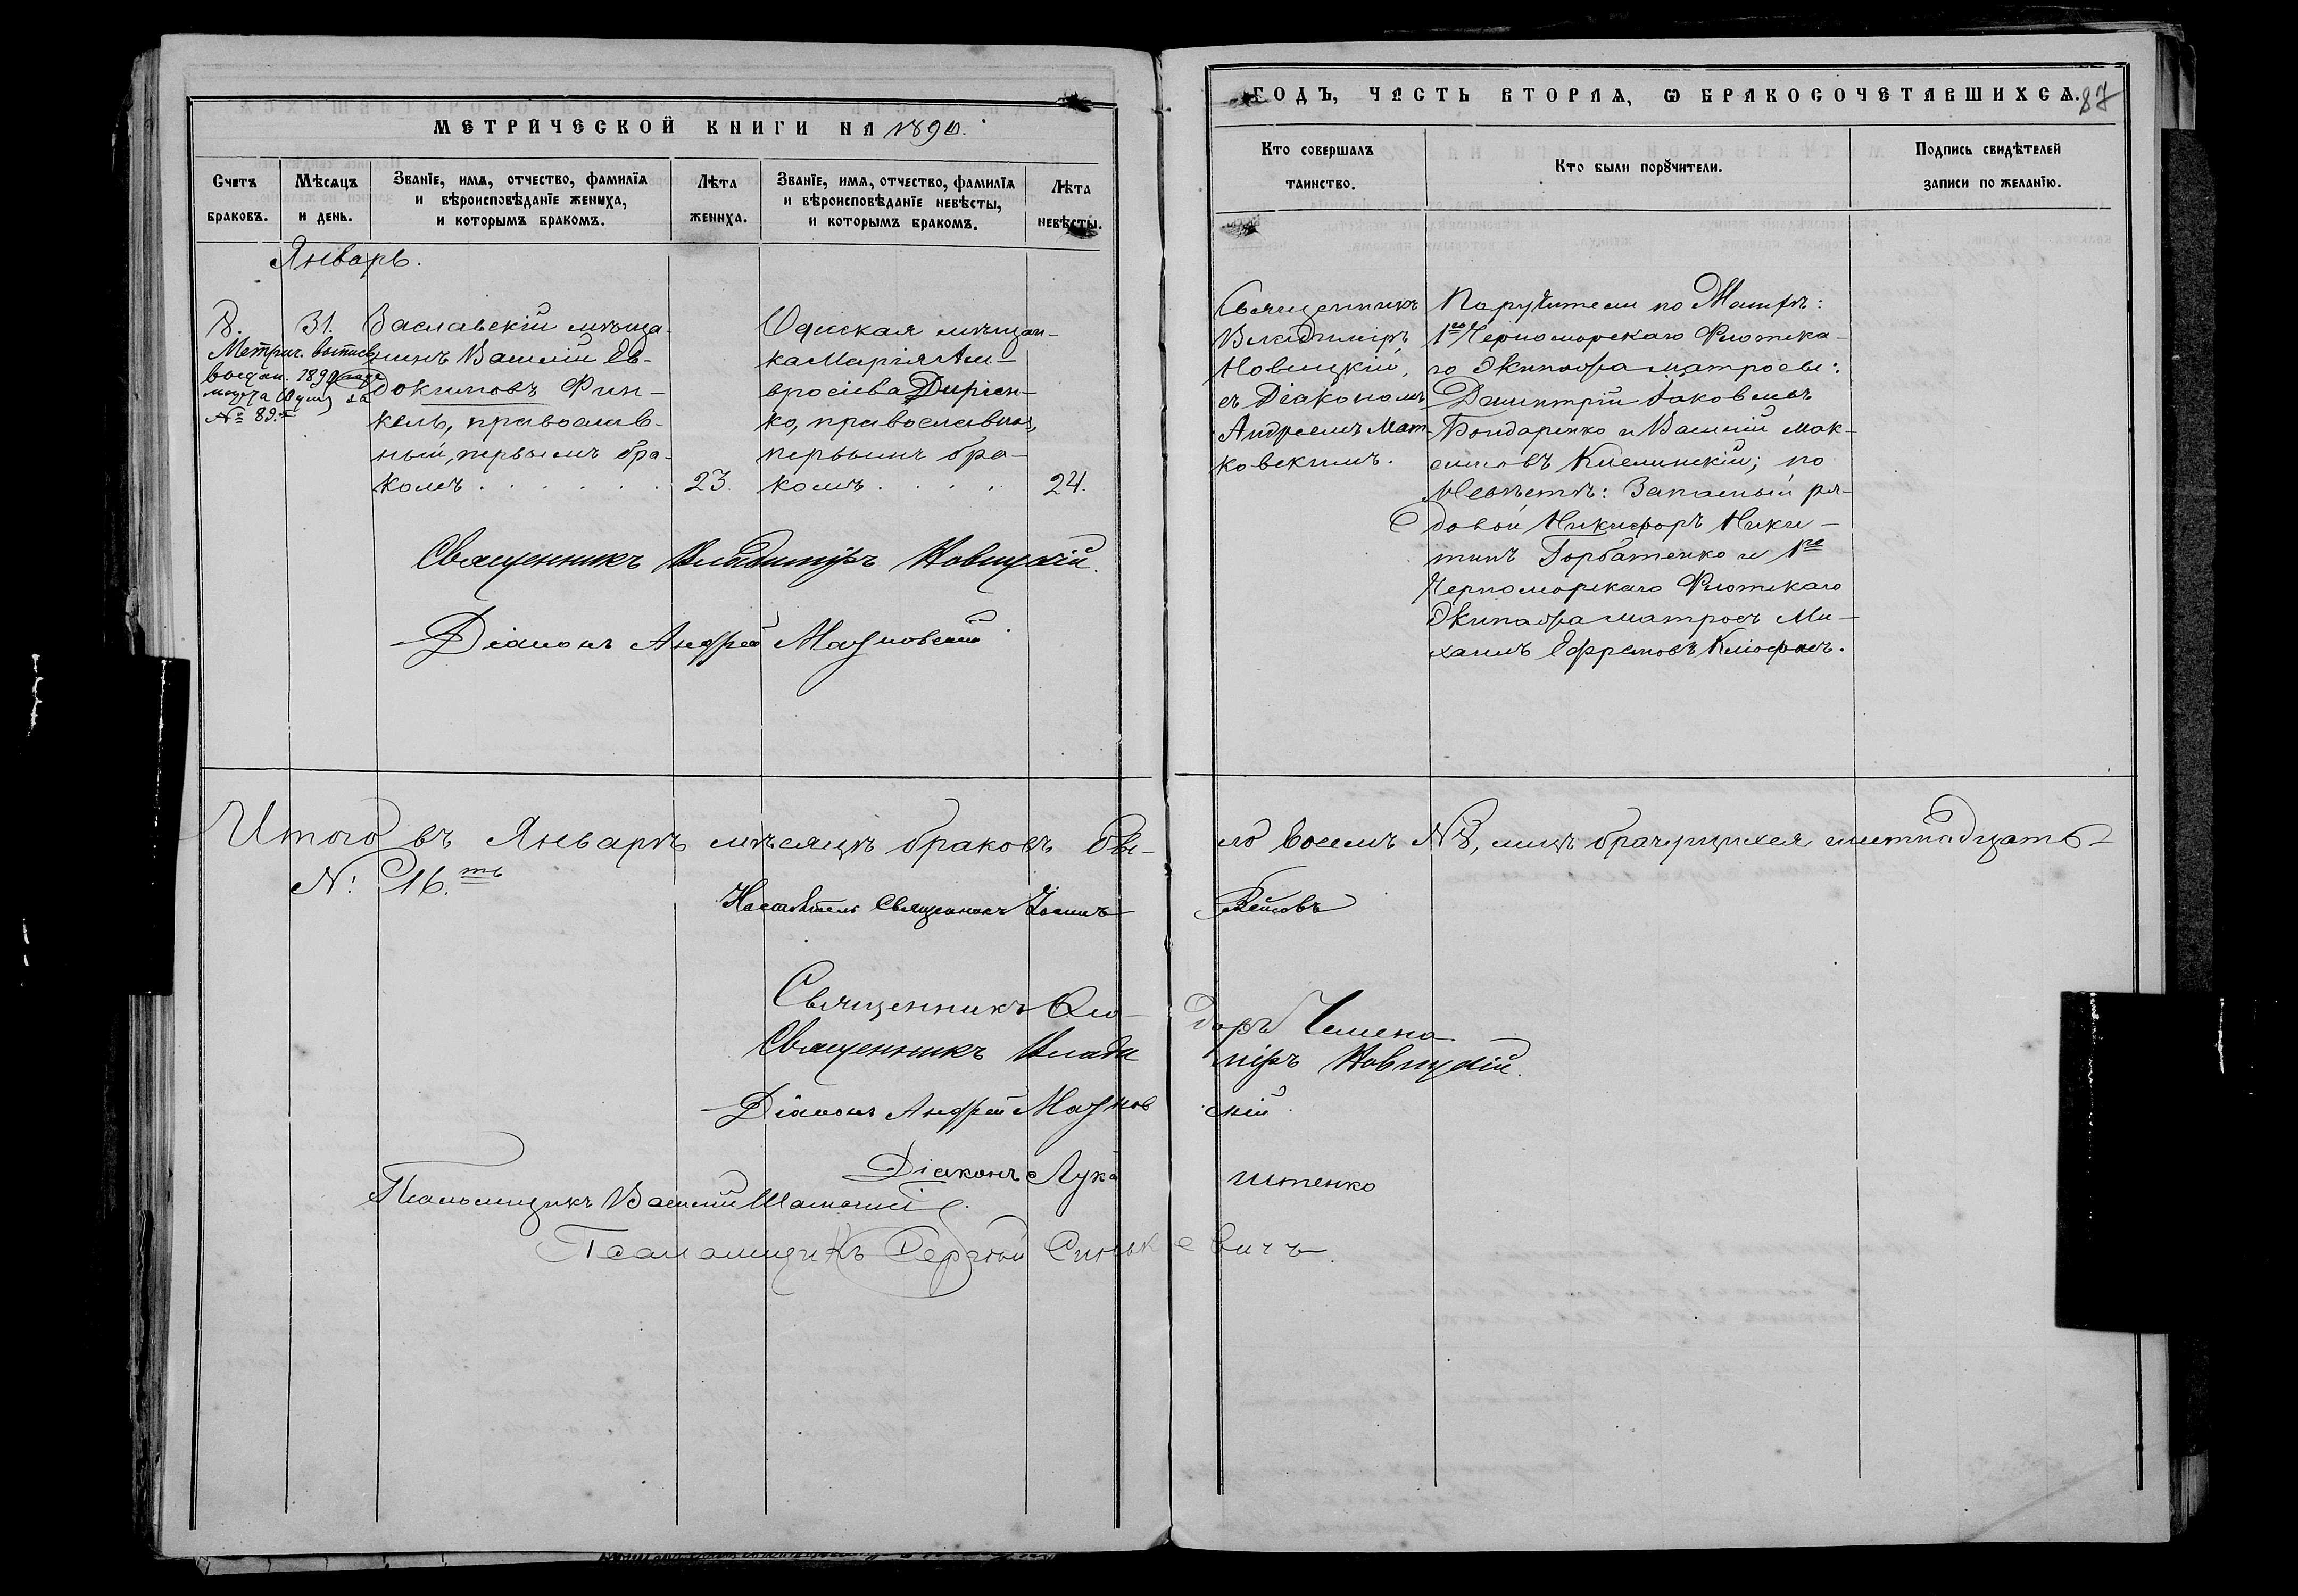 МЕТРИЧЕСКОЙ КНИГИ НА 1890.
Счетъ браковъ.
Мѣсяцъ и день.
Званіе, имя, отчество, фамилія и вѣроисповѣданіе жениха, и которымъ бракомъ.
Лѣта жениха.
Званіе, имя, отчество, фамилія и вѣроисповѣданіе невѣсты, и которымъ бракомъ.
Лѣта невѣсты.
Январь.
8.
Метрич. выпись
выдан. 1890 года
за
№ 89.
31.
Заславскій мѣща-
нинъ Василій Ев-
докимовъ Фин-
кель, православ-
ный, первымъ бра-
комъ . . . . . .
23.
Одесская мѣщан-
ка Марія Ам-
вросіева
ко, православная,
первымъ бра-
комъ . . . .
24.
Священникъ Владиміръ Новицкій.
Діаконъ Андрей Матковскій
ГОДЪ, ЧАСТЬ ВТОРАЯ, Ѡ БРАКОСОЧЕТАВШИХСЯ.
87
Кто совершалъ таинство.
Кто были порꙋчители.
Подпись свидѣтелей записи по желанію.
Священникъ
Владиміръ
Новицкій,
съ Діакономъ
Андреемъ Мат-
ковскимъ.
Поручители по Женихѣ:
1го Черноморскаго Флотска-
го Экипажа матросы:
Димитрій Іаковлевъ
Бондаренко и Василій Мак-
симовъ Кислинскій; по
Невѣстѣ: Запасный ря-
довой Никифоръ Ники-
тинъ Горбатенко и 1го
Черноморскаго Флотскаго
Экипажа матросъ Ми-
хаилъ Ефремовъ
Итого въ Январѣ мѣсяцѣ браковъ бы-
ло восемь № 8, лицъ брачущихся шестнадцать
№: 16.ть
Настоятель Священникъ
Священникъ Ѳео-
доръ Чемена.
Священникъ Влади
міръ Новицкій.
Діаконъ Андрей Матков
скій.
Діаконъ Лука
Псаломщикъ Василій
Псаломщикъ Сергѣй Синьк
евичъ.